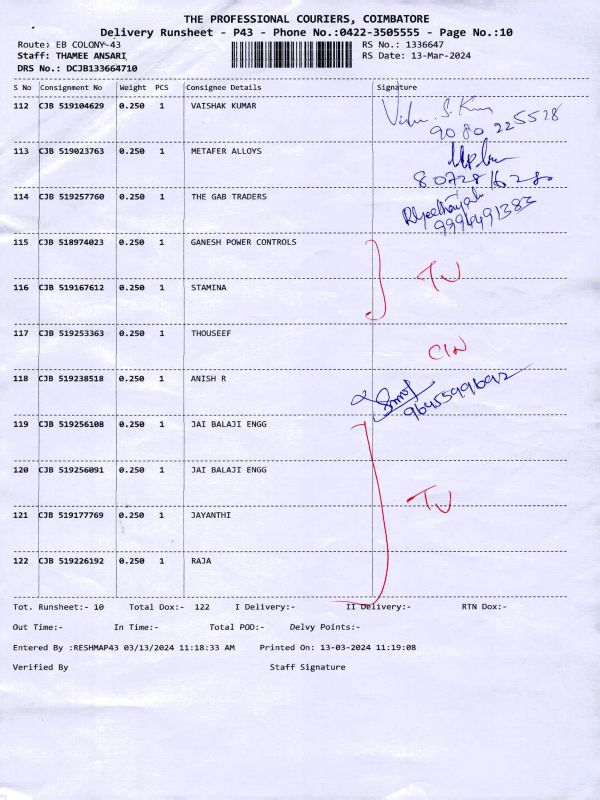 THE PROFESSIONAL COURIERS, COIMBATORE
Delivery Runsheet - P43 - Phone No.:0422-3505555 - Page No.:10
Route: EB COLONY-43 RS No.: 1336647
Staff: THAMEE ANSARI RS Date: 13-Mar-2024
DRS No.: DCJB133664710
S No Consignment No Weight PCS Consignee Details Signature
112 CJB 519104629 0.250 1 VAISHAK KUMAR
9080 225528
113 CJB 519023763 0.250 1 METAFER ALLOYS
80728 16280
114 CJB 519257760 0.250 1 THE GAB TRADERS
9994491383
115 CJB 518974023 0.250 1 GANESH POWER CONTROLS
TU
116 CJB 519167612 0.250 1 STAMINA
117 CJB 519253363 0.250 1 THOUSEEF
CIN
118 CJB 519238518 0.250 1 ANISH R
119 CJB 519256108 0.250 1 JAI BALAJI ENGG
120 CJB 519256091 0.250 1 JAI BALAJI ENGG
TU
121 CJB 519177769 0.250 1 JAYANTHI
122 CJB 519226192 0.250 1 RAJA
Tot. Runsheet:- 10 Total Dox:- 122 I Delivery:- II Delivery:- RTN Dox:-
Out Time:- In Time:- Total POD:- Delvy Points:-
Entered By :RESHMAP43 03/13/2024 11:18:33 AM Printed On: 13-03-2024 11:19:08
Verified By Staff Signature